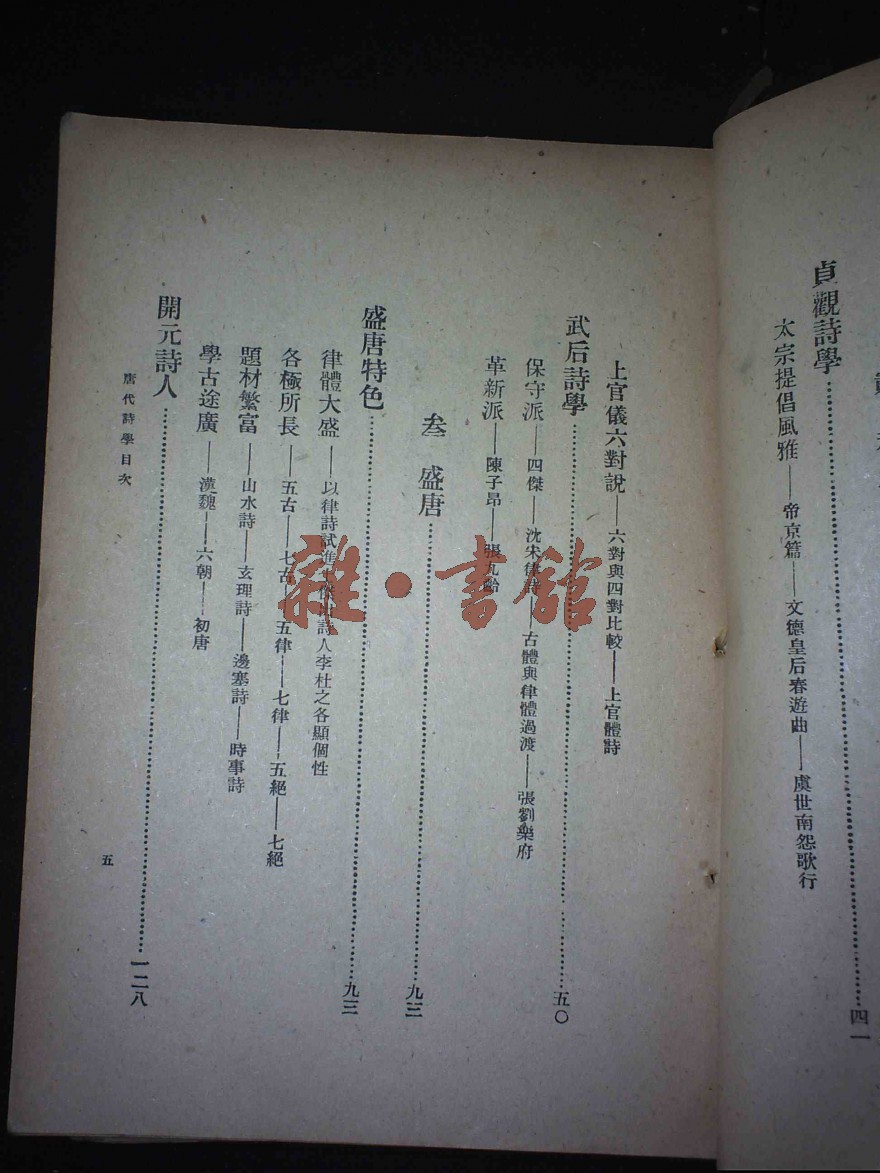 貞觀詩學……四一
太宗提倡風雅——帝京篇——文德皇后春遊曲——虞世南怨歌行
上官儀六對說——六對與四對比較——上官體詩
武后詩學……五〇
保守派——四傑——沈宋律詩——古體與律體過渡——張劉樂府
革新派——陳子昂——張九齡
叁 盛唐……九三
盛唐特色……九三
律體大盛——以律詩試進 詩人李杜之各顯個性
各極所長——五古——七古——五律——七律——五絕——七絕
題材繁富——山水詩——玄理詩——邊塞詩——時事詩
學古途廣——漢魏——六朝——初唐
開元詩人……一二八
唐代詩學目次
五
雜·書館